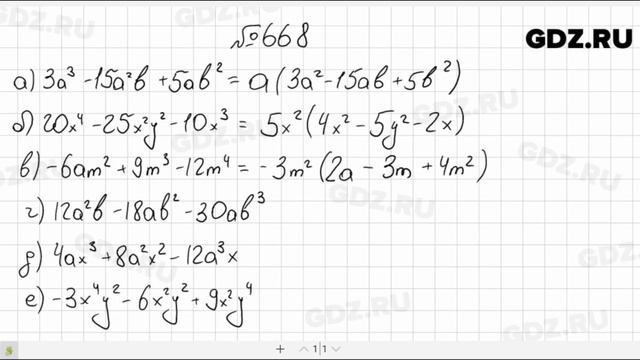 №668
GDZ.RU
а) 3a³ - 15a²b + 5ab² = a(3a² - 15ab + 5b²)
б) 20x⁴ - 25x²y² - 10x³ = 5x²(4x² - 5y² - 2x)
в) -6am² + 9m³ - 12m⁴ = -3m²(2a - 3m + 4m²)
г) 12a²b - 18ab² - 30ab³
д) 4ax³ + 8a²x² - 12a³x
е) -3x⁴y² - 6x²y² + 9x²y⁴
1|1